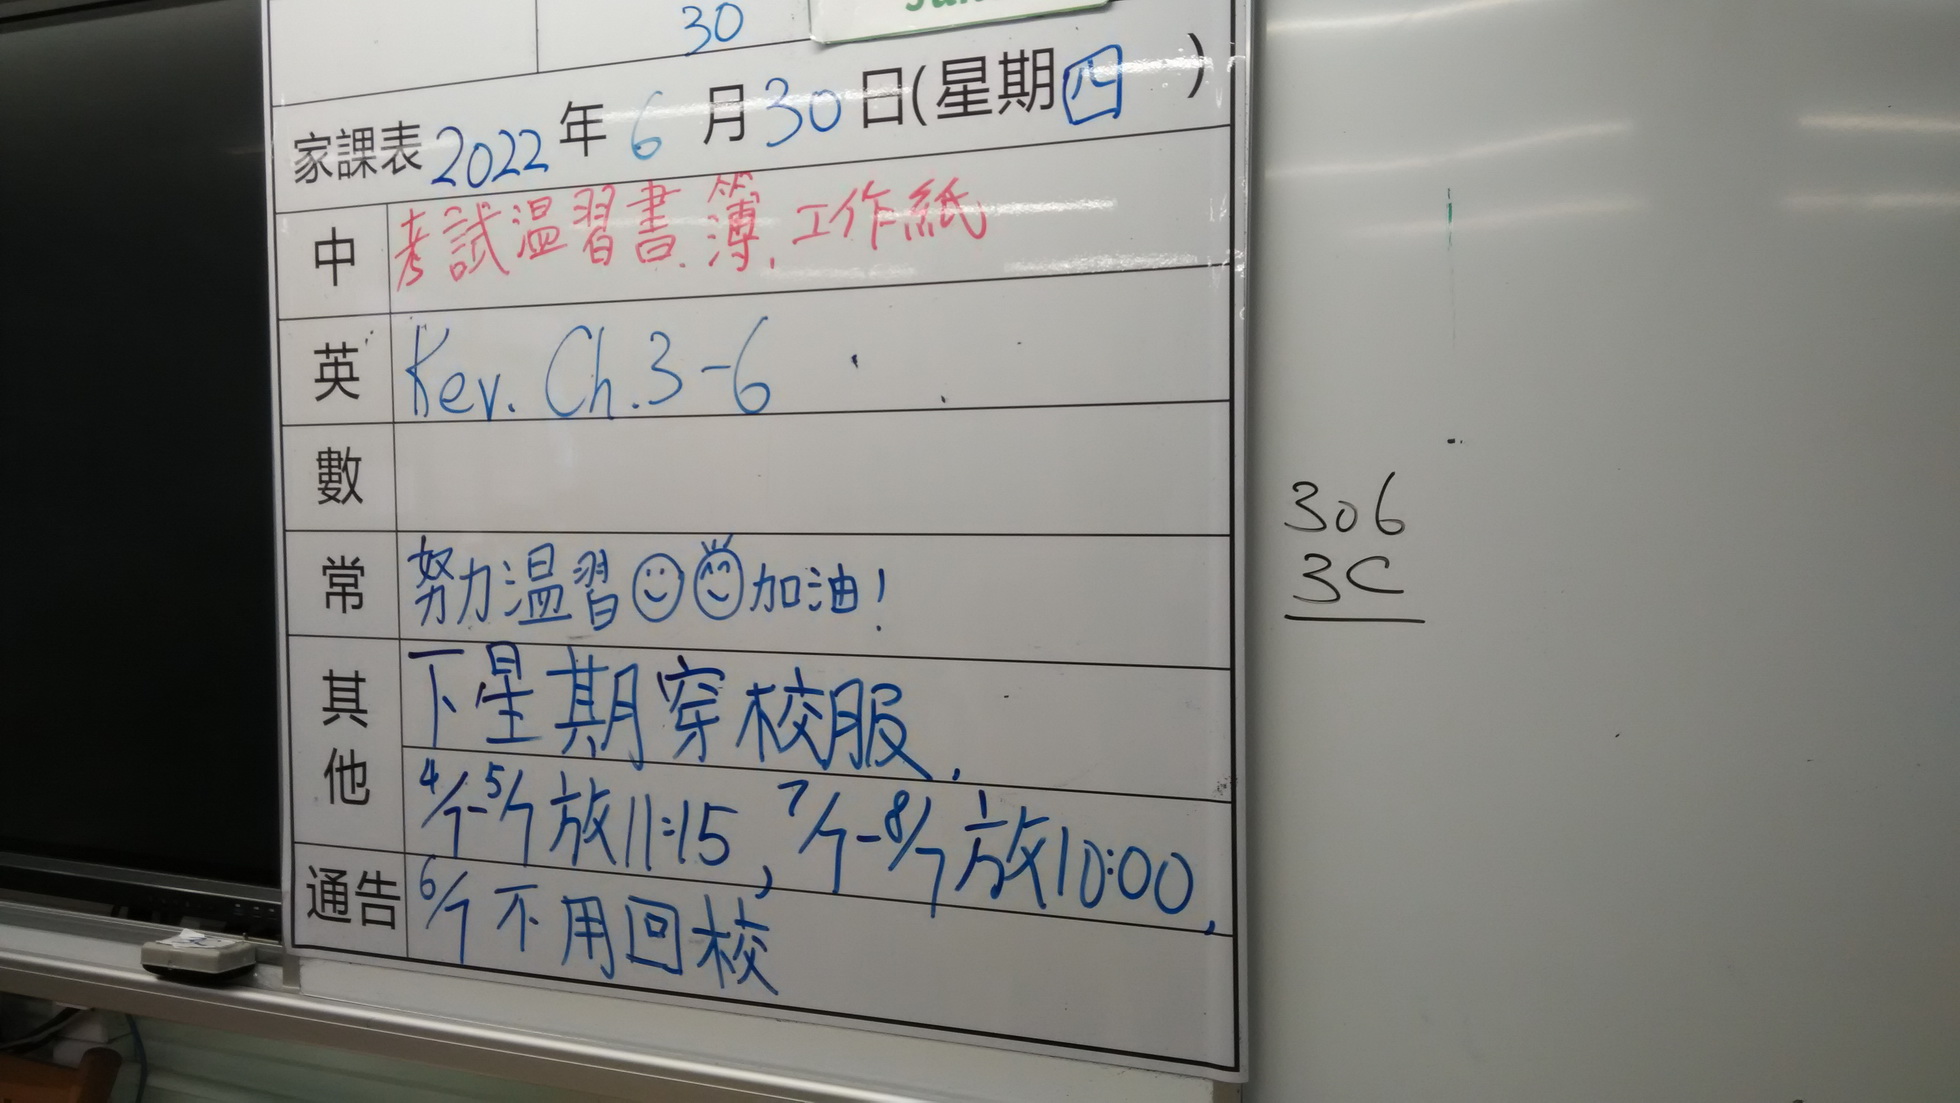 30
家課表2022年6月30日(星期四)
中 考試溫習書.簿.工作紙
英 Rev. Ch.3-6
數
常 努力溫習加油!
其他 下星期穿校服.
4/7-5/7放11:15, 7/7-8/7放10:00,
通告 6/7不用回校
306
3C